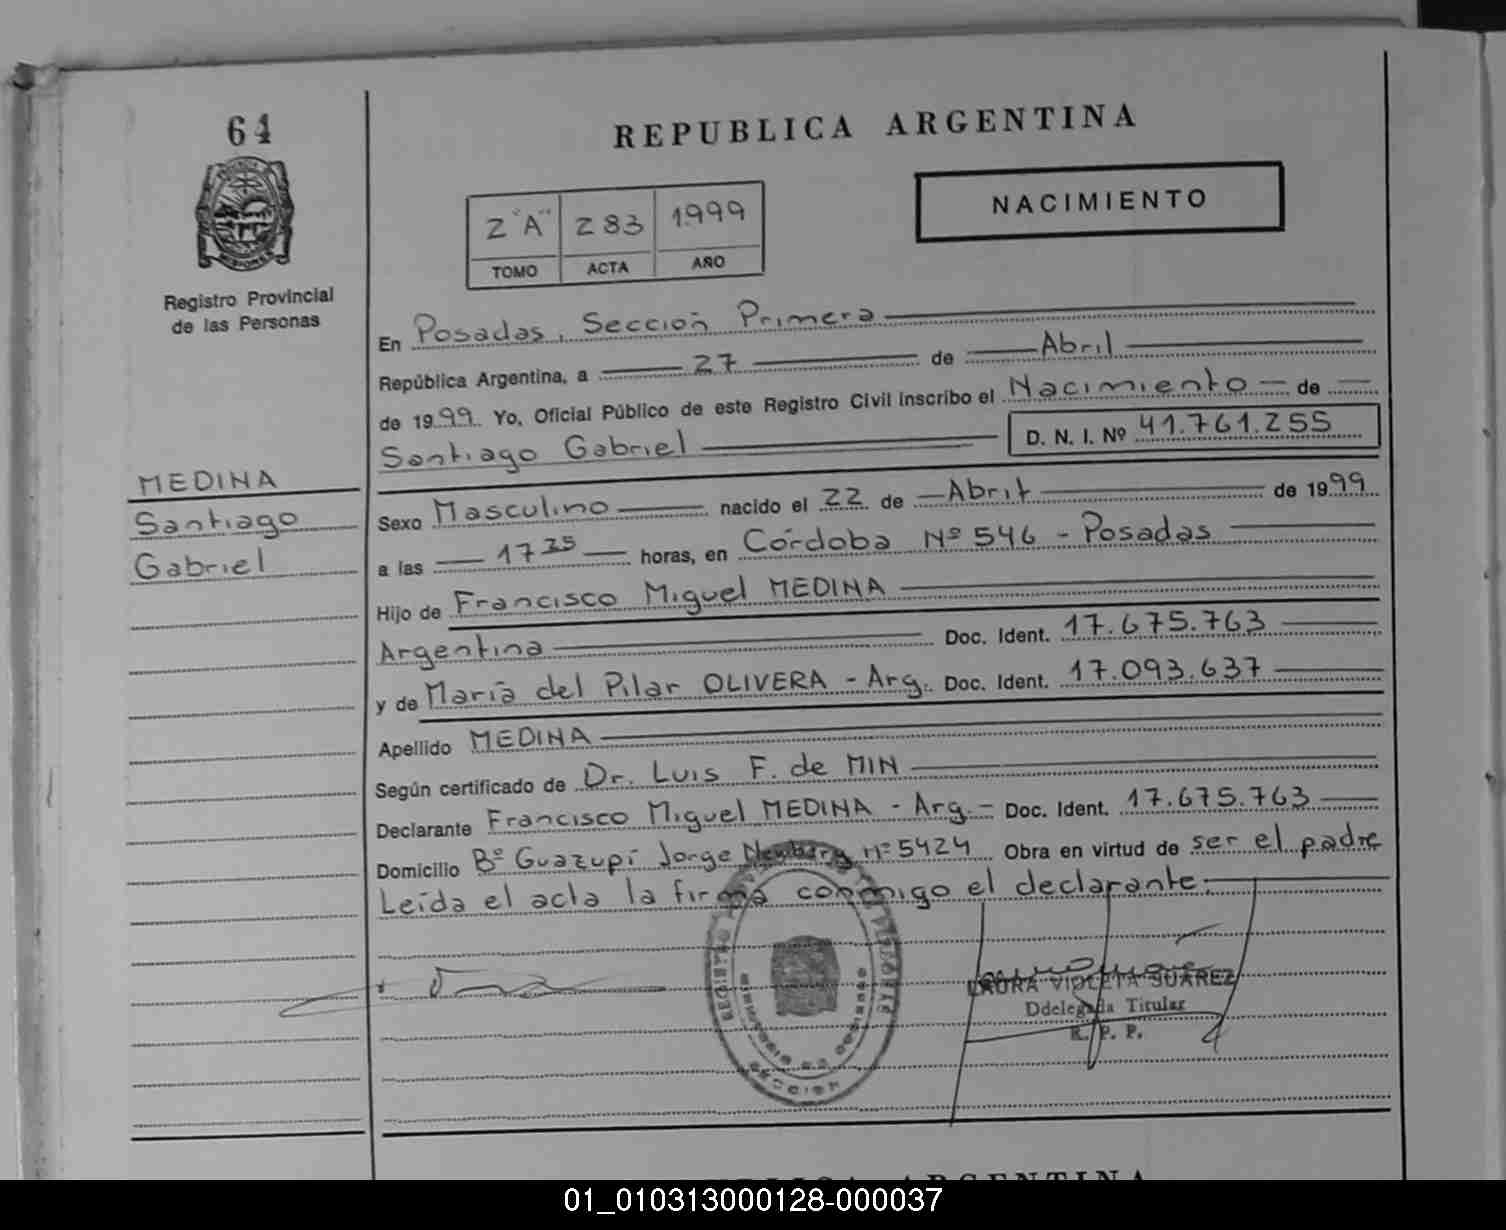 64
Registro Provincial
de las Personas
MEDINA
Santiago
Gabriel
REPUBLICA ARGENTINA
NACIMIENTO
2 "A" 283 1999
TOMO ACTA AÑO
En Posadas, Sección Primera
República Argentina, a 27 de Abril
de 1999 Yo, Oficial Público de este Registro Civil inscribo el Nacimiento de
Santiago Gabriel D. N. I. Nº 41.761.255
Sexo Masculino nacido el 22 de Abril de 1999
a las 17 35 horas, en Córdoba Nº 546 - Posadas
Hijo de Francisco Miguel MEDINA
Argentina Doc. Ident. 17.675.763
y de María del Pilar OLIVERA - Arg. Doc. Ident. 17.093.637
Apellido MEDINA
Según certificado de Dr. Luis F. de MIN
Declarante Francisco Miguel MEDINA - Arg. - Doc. Ident. 17.675.763
Domicilio Bº Guazupí Jorge Newbery Nº 5424 Obra en virtud de ser el padre
Leída el acta la firma conmigo el declarante.
LAURA VIOLETA SUAREZ
Ddelegada Titular
R. P. P.
REPUBLICA ARGENTINA
01_010313000128-000037